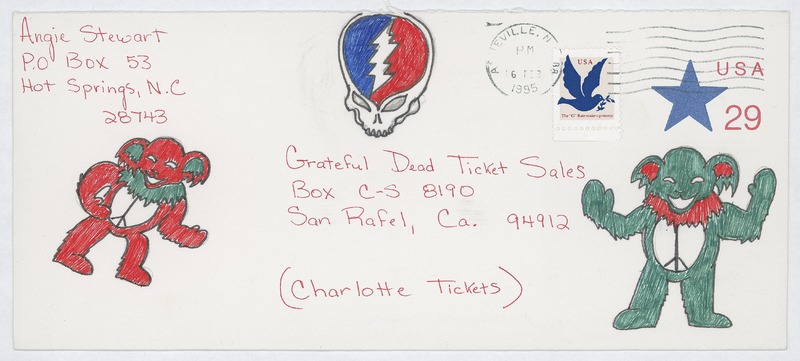 Angie Stewart
P.O Box 53
Hot Springs, N.C
28743
PM
1995
USA
The "G" Rate make-up stamp
USA
29
Grateful Dead Ticket Sales
Box C-S 8190
San Rafel, Ca. 94912
(Charlotte Tickets)